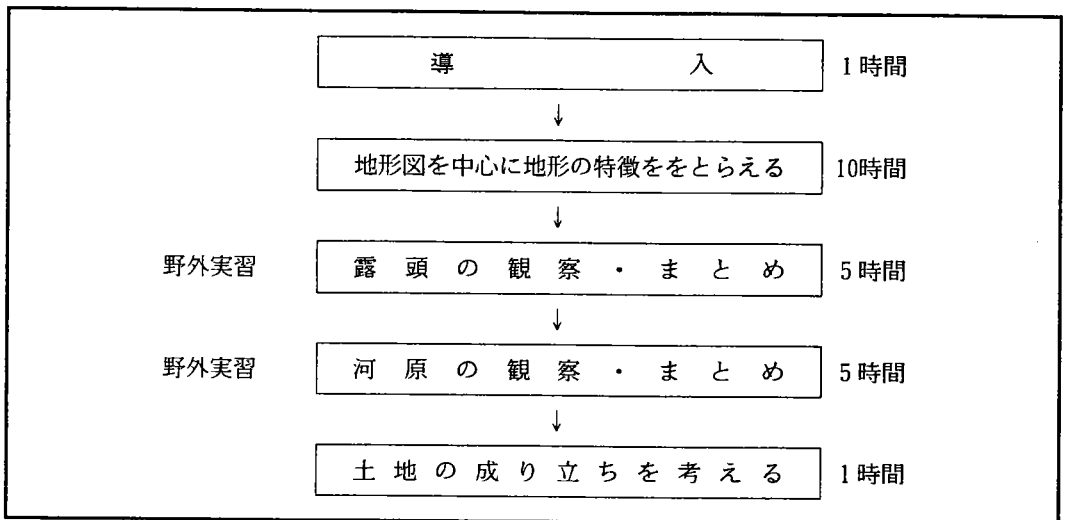 導入 1時間
↓
地形図を中心に地形の特徴ををとらえる 10時間
↓
野外実習 露頭の観察・まとめ 5時間
↓
野外実習 河原の観察・まとめ 5時間
↓
土地の成り立ちを考える 1時間